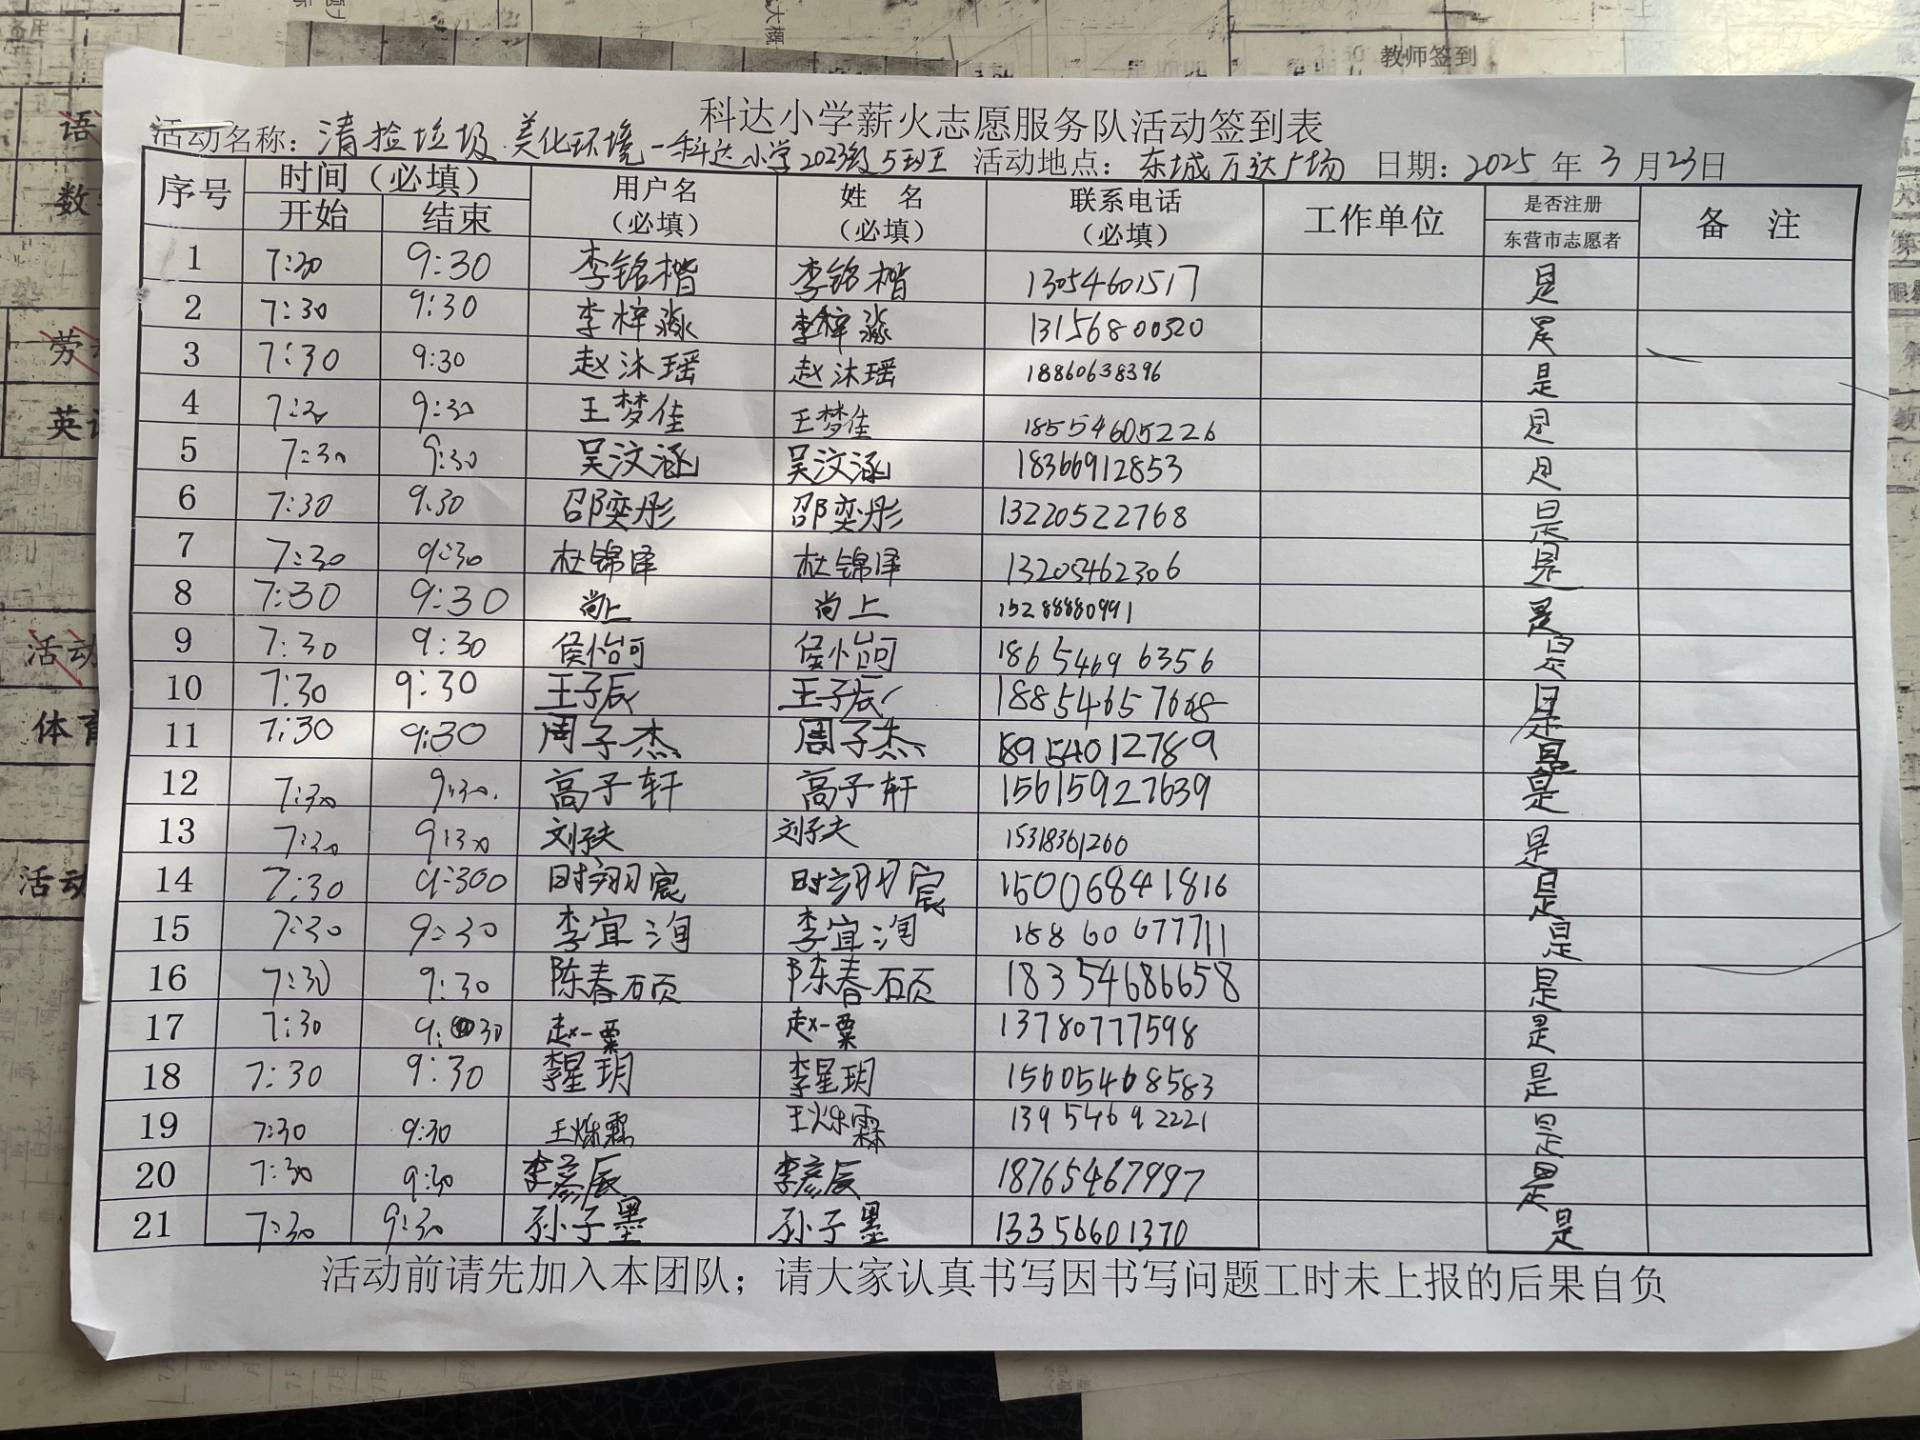 教师签到
科达小学薪火志愿服务队活动签到表
活动名称：清捡垃圾 美化环境－科达小学2023级5班 活动地点：东城万达广场 日期：2025年3月23日
序号 时间（必填） 用户名（必填） 姓 名（必填） 联系电话（必填） 工作单位 是否注册东营市志愿者 备 注
开始 结束
1 7:30 9:30 李铭楷 李铭楷 13054601517 是
2 7:30 9:30 李梓淼 李梓淼 13156800320 是
3 7:30 9:30 赵沐瑶 赵沐瑶 18860638396 是
4 7:30 9:30 王梦佳 王梦佳 18554605226 是
5 7:30 9:30 吴汶涵 吴汶涵 18366912853 是
6 7:30 9.30 邵奕彤 邵奕彤 13220522768 是
7 7:30 9:30 杜锦泽 杜锦泽 13205462306 是
8 7:30 9:30 尚上 尚上 15288880991 是
9 7:30 9:30 侯怡可 侯怡可 18654696356 是
10 7:30 9:30 王子辰 王子辰 18854657668 是
11 7:30 9:30 周子杰 周子杰 18954012789 是
12 7:30 9:30. 高子轩 高子轩 15615927639 是
13 7:30 9:30 刘子夫 刘子夫 15318361260 是
14 7:30 9:300 时翊宸 时翊宸 15006841816 是
15 7:30 9:30 李宜洵 李宜洵 15860677711 是
16 7:30 9:30 陈春硕 陈春硕 18354686658 是
17 7:30 9:30 赵一粟 赵一粟 13780777598 是
18 7:30 9:30 李星玥 李星玥 15605468583 是
19 7:30 9:30 王烁霖 王烁霖 13954692221 是
20 7:30 9:30 李彦辰 李彦辰 18765467997 是
21 7:30 9:30 孙子墨 孙子墨 13356601370 是
活动前请先加入本团队；请大家认真书写因书写问题工时未上报的后果自负